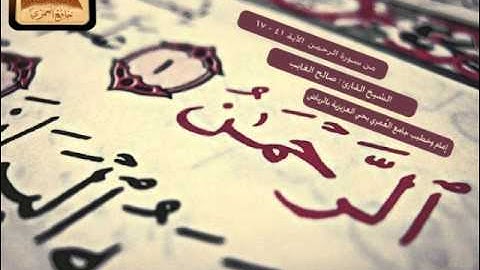 جامع العمري
من سورة الرحمن الآية ٤١ - ١٧
الشيخ القارئ : صالح الغايب
إمام وخطيب جامع العمري بحي العزيزية بالرياض
ٱلرَّحْمَٰنُ ١